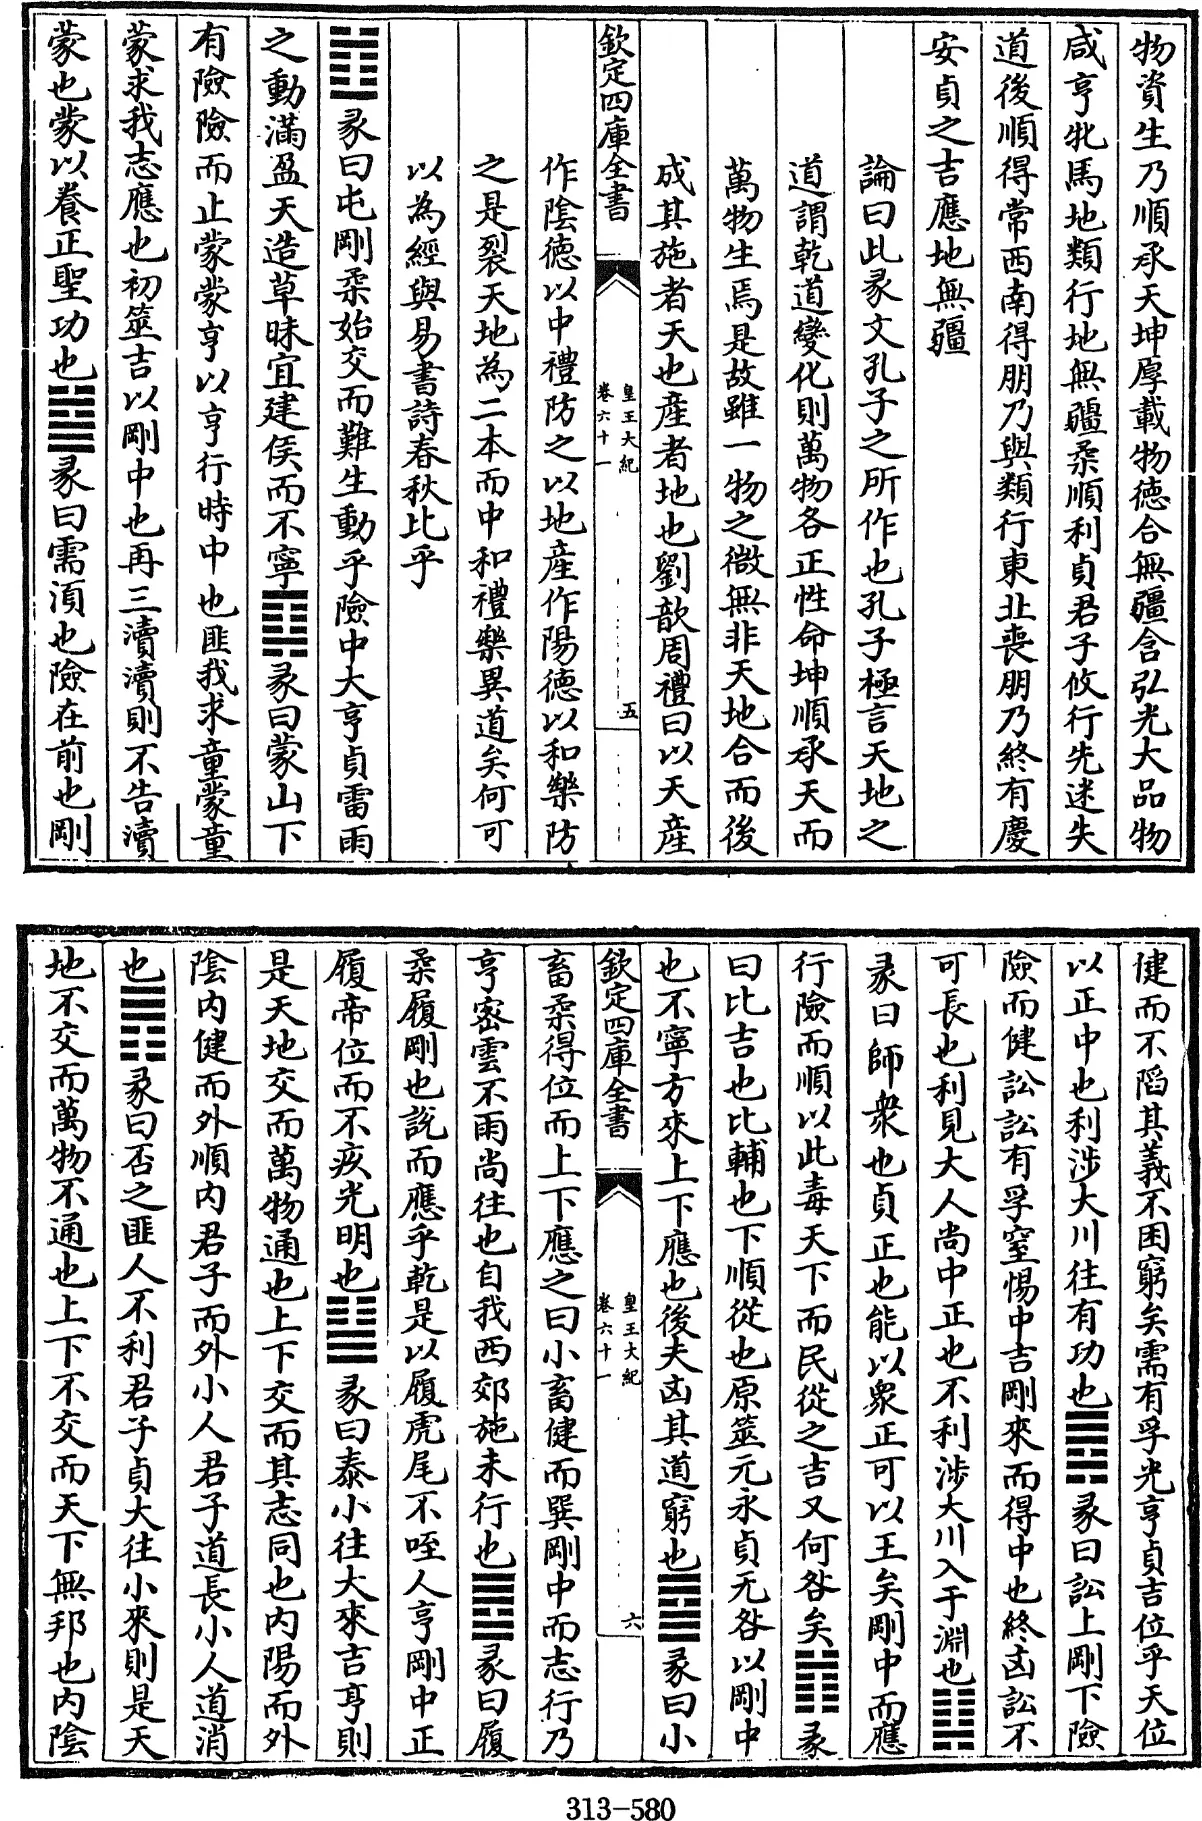 物資生乃順承天坤厚載物德合無疆含弘光大品物
咸亨牝馬地類行地無疆柔順利貞君子攸行先迷失
道後順得常西南得朋乃與類行東北喪朋乃終有慶
安貞之吉應地無疆
論曰此彖文孔子之所作也孔子極言天地之
道謂乾道變化則萬物各正性命坤順承天而
萬物生焉是故雖一物之微無非天地合而後
成其施者天也產者地也劉歆周禮曰以天產
欽定四庫全書
皇王大紀
卷六十一
五
作陰德以中禮防之以地產作陽德以和樂防
之是裂天地為二本而中和禮樂異道矣何可
以為經與易書詩春秋比乎
䷂彖曰屯剛柔始交而難生動乎險中大亨貞雷雨
之動滿盈天造草昧宜建侯而不寧䷃彖曰蒙山下
有險險而止蒙蒙亨以亨行時中也匪我求童蒙童
蒙求我志應也初筮吉以剛中也再三瀆瀆則不告瀆
蒙也蒙以養正聖功也䷄彖曰需須也險在前也剛
健而不陷其義不困窮矣需有孚光亨貞吉位乎天位
以正中也利涉大川往有功也䷅彖曰訟上剛下險
險而健訟訟有孚窒惕中吉剛來而得中也終凶訟不
可長也利見大人尚中正也不利涉大川入于淵也䷆
彖曰師衆也貞正也能以衆正可以王矣剛中而應
行險而順以此毒天下而民從之吉又何咎矣䷇彖
曰比吉也比輔也下順從也原筮元永貞无咎以剛中
也不寧方來上下應也後夫凶其道窮也䷈彖曰小
欽定四庫全書
皇王大紀
卷六十一
六
畜柔得位而上下應之曰小畜健而巽剛中而志行乃
亨密雲不雨尚往也自我西郊施未行也䷉彖曰履
柔履剛也說而應乎乾是以履虎尾不咥人亨剛中正
履帝位而不疚光明也䷊彖曰泰小往大來吉亨則
是天地交而萬物通也上下交而其志同也內陽而外
陰內健而外順內君子而外小人君子道長小人道消
也䷋彖曰否之匪人不利君子貞大往小來則是天
地不交而萬物不通也上下不交而天下無邦也內陰
313-580